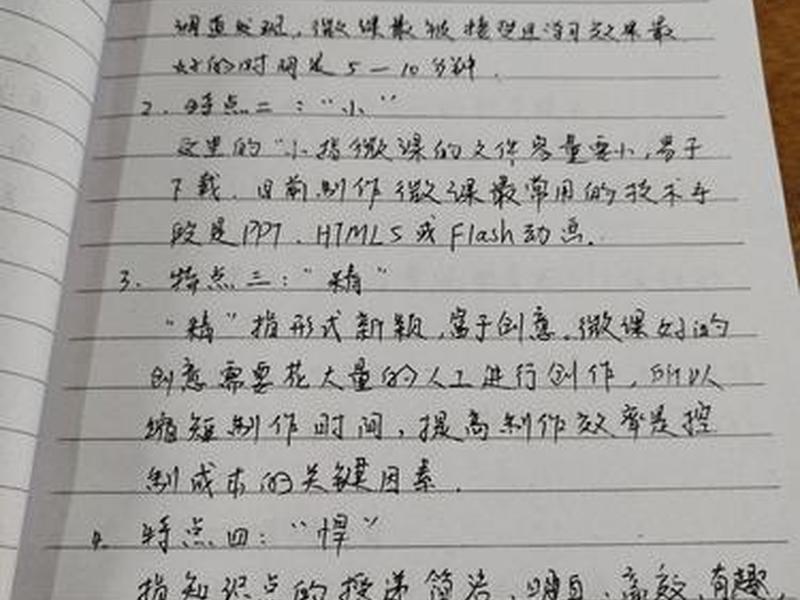 调查发现，微课最被接受且学习效果最
好的时间是5—10分钟．
2．特点二：“小”
这里的“小指微课的文件容量要小，易于
下载．目前制作微课最常用的技术手
段是PPT．HTML5或Flash动画．
3．特点三：“精”
“精”指形式新颖，富于创意．微课好的
创意需要花大量的人工进行创作，所以
缩短制作时间，提高制作效率是控
制成本的关键因素．
4．特点四：“悍”
指知识点的授递简洁、明白、高效、有趣，